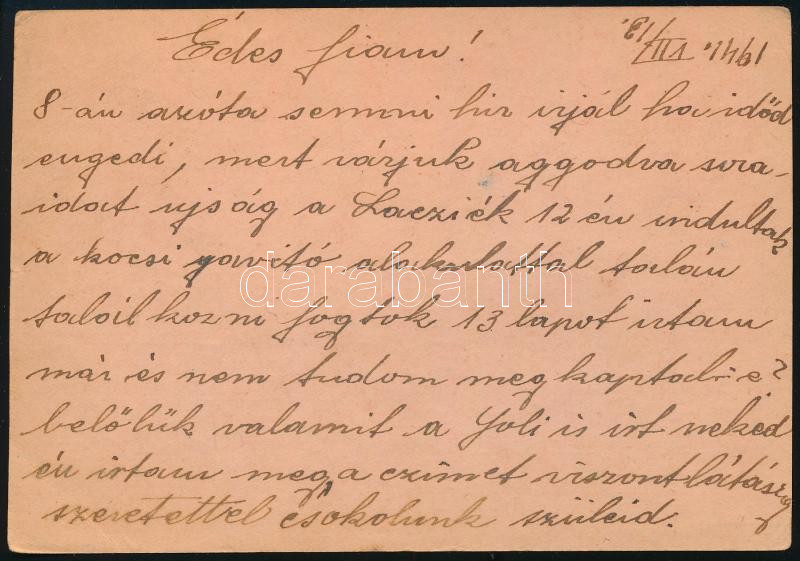 Édes fiam!
1941. VII/18.
8-án azóta semmi hir irjál ha időd
engedi, mert várjuk aggodva sora-
idat ujság a Lacziék 12 én indultak
a kocsi javító alakulattal talán
talál kozni fogtok 13 lapot irtam
már és nem tudom megkaptál-i e?
belőlük valamit a Joli is irt neked
én irtam meg a czimet viszontlátásig
szeretettel csokolunk szüleid.
darabanth